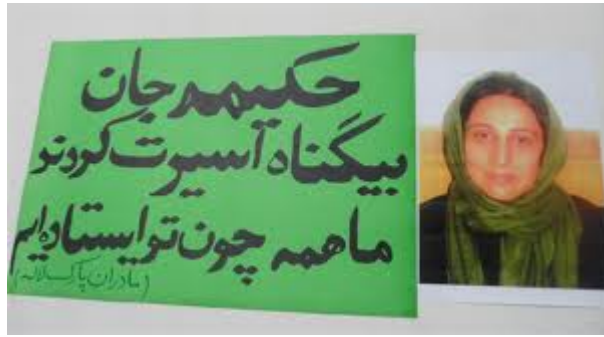 حکیمه جان
بیگناه اسیرت کردند
ما همه چون تو ایستاده‌ایم
(مادران پارک لاله)